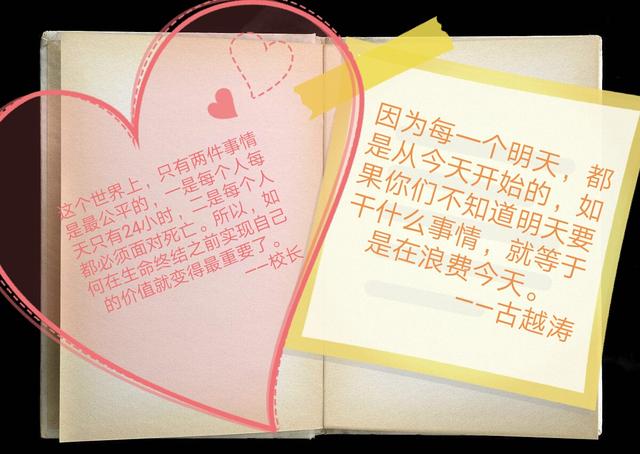 这个世界上，只有两件事情
是最公平的，一是每个人每
天只有24小时，二是每个人
都必须面对死亡。所以，如
何在生命终结之前实现自己
的价值就变得最重要了。
——校长
因为每一个明天，都
是从今天开始的，如
果你们不知道明天要
干什么事情，就等于
是在浪费今天。
——古越涛